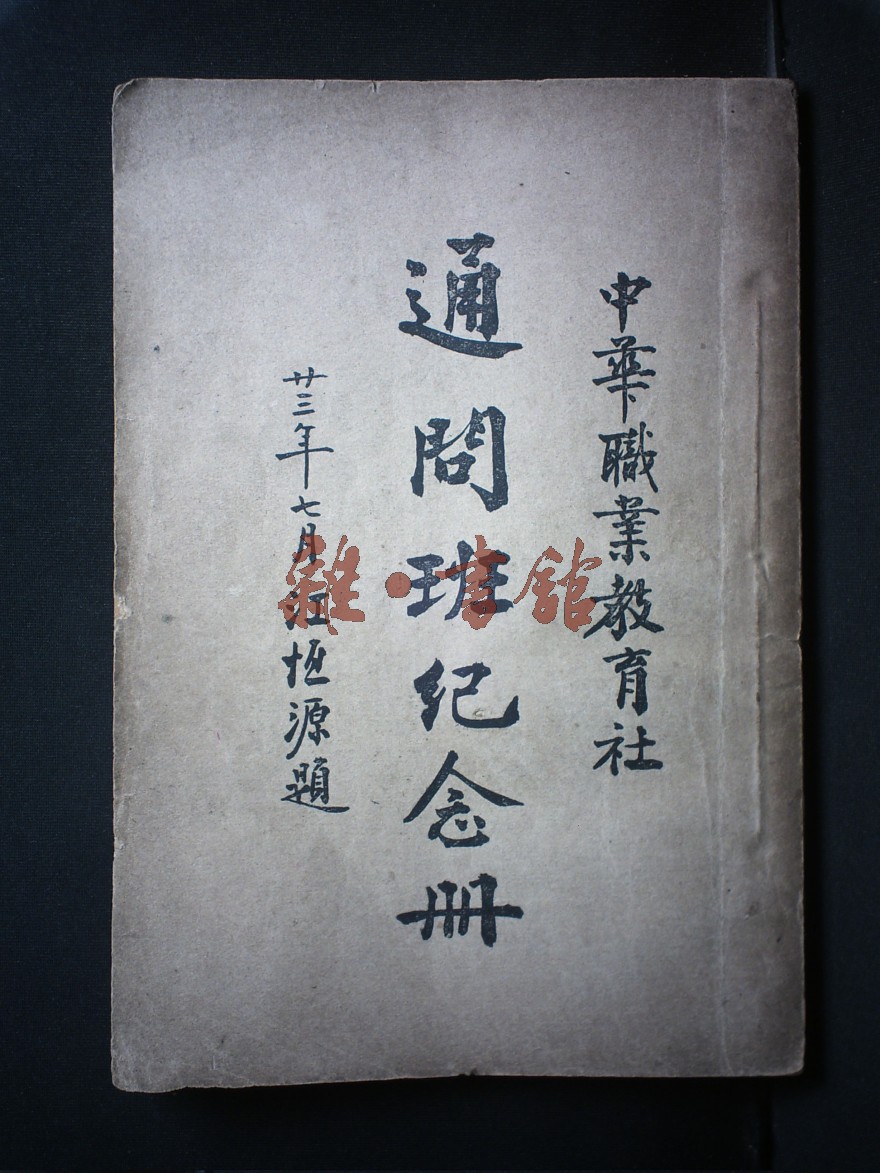 中華職業教育社
通問班紀念冊
廿三年七月江恆源題
雜·書館